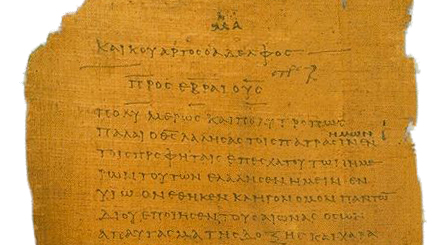 ΚΑΙ ΚΟΥΑΡΤΟϹ Ο ΑΔΕΛΦΟϹ
ΠΡΟϹ ΕΒΡΑΙΟΥϹ
ΠΟΛΥΜΕΡΩϹ ΚΑΙ ΠΟΛΥΤΡΟΠΩϹ
ΗΜΩΝ
ΠΑΛΑΙ Ο ΘϹ ΛΑΛΗϹΑϹ ΤΟΙϹ ΠΑΤΡΑϹΙΝ ΕΝ
ΤΟΙϹ ΠΡΟΦΗΤΑΙϹ ΕΠ ΕϹΧΑΤΟΥ ΤΩΝ ΗΜΕ
ΡΩΝ ΤΟΥΤΩΝ ΕΛΑΛΗϹΕΝ ΗΜΕΙΝ ΕΝ
ΥΙΩ ΟΝ ΕΘΗΚΕΝ ΚΛΗΡΟΝΟΜΟΝ ΠΑΝΤΩ
ΔΙ ΟΥ ΕΠΟΙΗϹΕΝ ΤΟΥϹ ΑΙΩΝΑϹ ΟϹ ΩΝ
ΑΠΑΥΓΑϹΜΑ ΤΗϹ ΔΟΞΗϹ ΚΑΙ ΧΑΡΑ